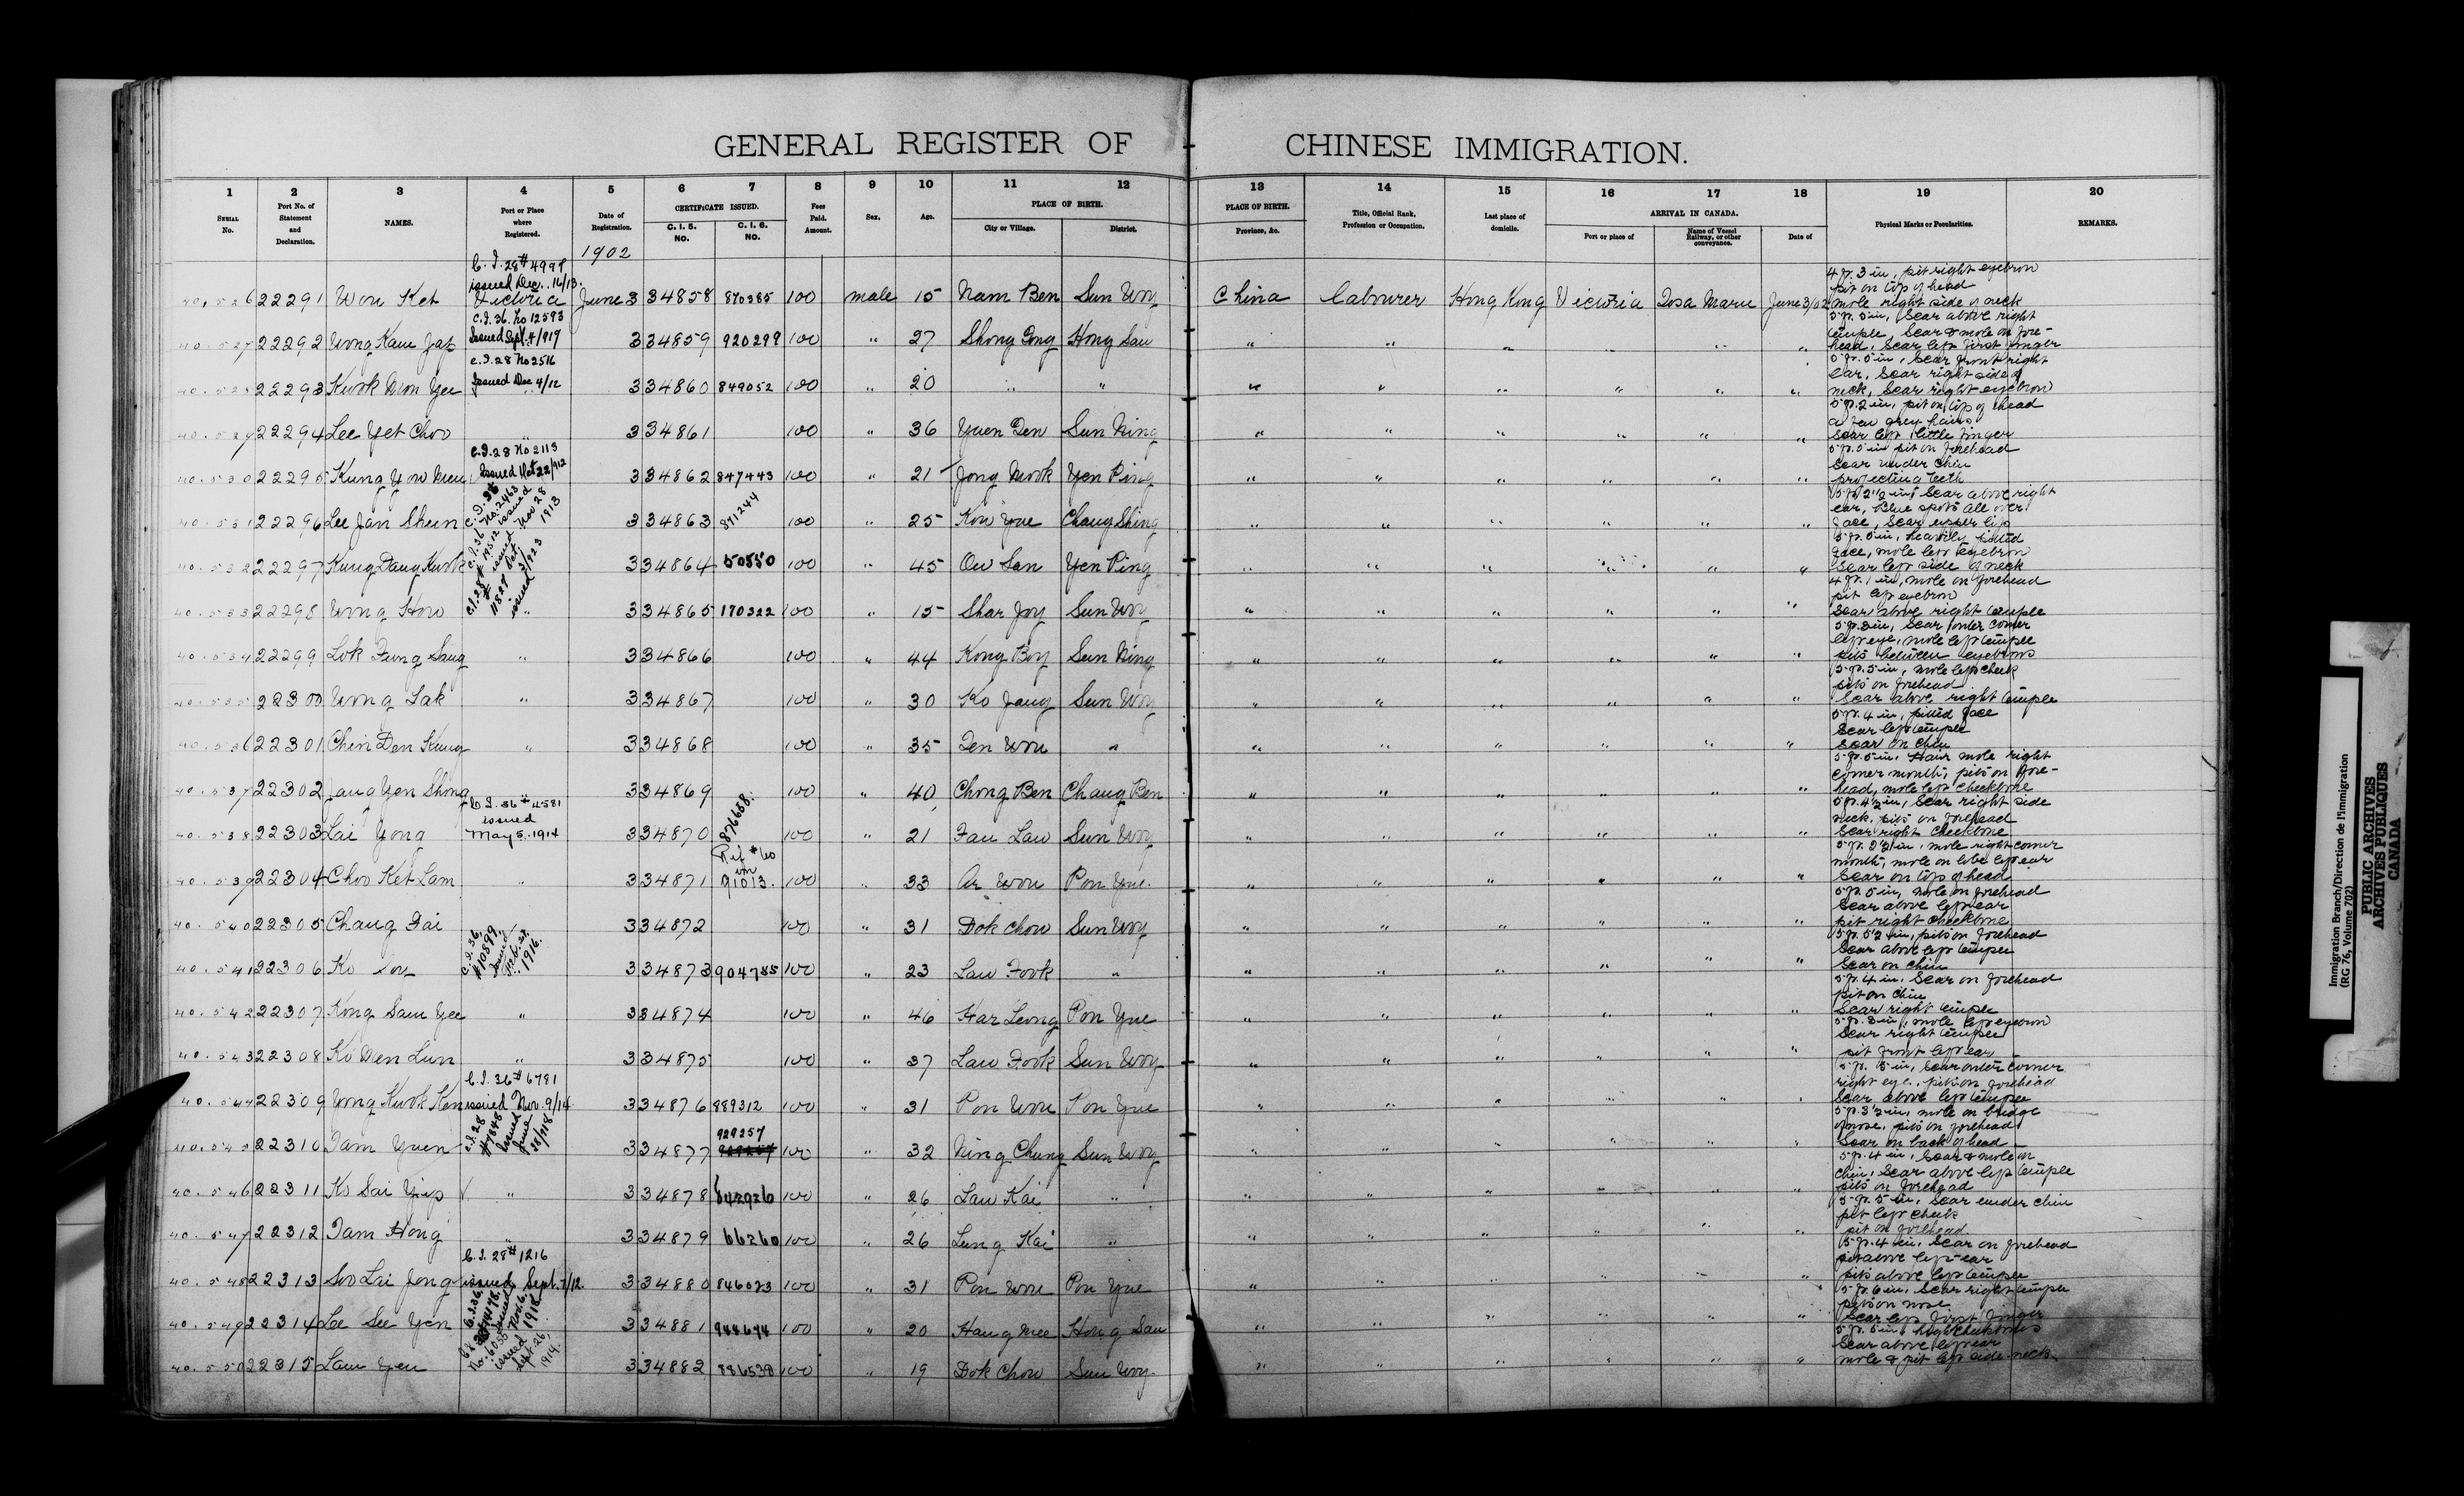 GENERAL REGISTER OF CHINESE IMMIGRATION.
1 2 3 4 5 6 7 8 9 10 11 12 13 14 15 16 17 18 19 20
SERIAL No. Port No. of Statement and Declaration. NAMES. Port or Place where Registered. Date of Registration. CERTIFICATE ISSUED. C. I. 5. NO. C. I. 6. NO. Fees Paid. Amount. Sex. Age. PLACE OF BIRTH. City or Village. District. PLACE OF BIRTH. Province, &c. Title, Official Rank, Profession or Occupation. Last place of domicile. ARRIVAL IN CANADA. Port or place of Name of Vessel Railway, or other conveyance. Date of Physical Marks or Peculiarities. REMARKS.
1902
C. I. 28 # 4998 issued Dec. 16/13.
40,526 22291 Wou Ket Victoria June 3 34858 870385 100 male 15 Nam Ben Sun Woy China Labourer Hong Kong Victoria Tosa Maru June 3/02 4 ft. 3 in, pit right eyebrow pit on top of head mole right side of neck
C.I. 36. No 12593 Issued Sept. 4/917
40.527 22292 Wong Kam Jap 3 34859 920299 100 " 27 Shong Gong Hong San " " " " " " 5 ft. 5 in, scar above right temple, scar & mole on fore-head, scar left first finger
C.I. 28 No 2516 Issued Dec 4/12
40.528 22293 Kwok Mon Yee 3 34860 849052 100 " 20 " " " " " " " " 5 ft. 5 in, scar front right ear, scar right side of neck, scar right eyebrow
40.529 22294 Lee Yet Choo " 3 34861 100 " 36 Yuen Den Sun Ning " " " " " " 5 ft. 2 in, pit on top of head a few grey hairs scar left little finger
C.I. 28 No 2113 Issued Oct 22/912
40.530 22295 Kung Yow Meu 3 34862 847443 100 " 21 Jong Mook Yen Ping " " " " " " 5 ft. 5 in pit on forehead scar under chin projecting teeth
40.531 22296 Lee Jan Sheen C.I. 36 No. 2463 issued Nov 28 1913 3 34863 871244 100 " 25 Kow Yue Chang Shing " " " " " " 5 ft. 2 1/2 in, scar above right ear, Blue spots all over face, scar upper lip
40.532 22297 Kung Dang Kwok C.I. 36 # 19512 issued Oct. 3 34864 50550 100 " 45 Ow San Yen Ping " " " " " " 5 ft. 5 in, heavily pitted face, mole left eyebrow scar left side of neck
40.533 22298 Wong How C.I. 28 # 11827 issued 3/1923 " 3 34865 170322 100 " 15 Shar Joy Sun Woy " " " " " " 4 ft. 1 in, mole on forehead pit left eyebrow scar above right temple
40.534 22299 Lok Fung Sang " 3 34866 100 " 44 Kong Boy Sun Ning " " " " " " 5 ft. 3 in, scar outer corner left eye, mole left temple pits between eyebrows
40.535 22300 Wong Lak " 3 34867 100 " 30 Ko Jang Sun Woy " " " " " " 5 ft. 5 in, mole left cheek pits on forehead scar above right temple
40.536 22301 Chin Den Kung " 3 34868 100 " 35 Ten Wou " " " " " " " 5 ft. 4 in, pitted face scar left temple scar on chin
40.537 22302 Jang Yen Shong " 3 34869 100 " 40 Chong Ben Chang Ben " " " " " " 5 ft. 5 in, Hair mole right corner mouth, pits on fore-head, mole left cheekbone
40.538 22303 Lai Yong C. I. 36 # 4581 issued May 5. 1914 3 34870 876658 100 " 21 Fau Law Sun Woy " " " " " " 5 ft. 4 1/2 in, scar right side neck, pits on forehead scar right cheekbone
40.539 22304 Choo Ket Lam " 3 34871 91013. 100 " 33 Ar Wou Pon Yue. " " " " " " 5 ft. 2 1/2 in, mole right corner mouth, mole on lobe left ear scar on top of head
40.540 22305 Chang Fai 3 34872 100 " 31 Dok Chow Sun Woy " " " " " " 5 ft. 5 in, mole on forehead scar above left ear pit right cheekbone
40.541 22306 Ko Soy C.I. 36, #10899, Issued Feb. 1916. 3 34873 904785 100 " 23 Law Fook " " " " " " " 5 ft. 5 1/2 in, pits on forehead scar above left temple scar on chin
40.542 22307 Kong Sam Yee " 3 34874 100 " 46 Har Leong Pon Yue " " " " " " 5 ft. 4 in, scar on forehead pit on chin scar right temple
40.543 22308 Ko Den Lun " 3 34875 100 " 37 Law Fook Sun Woy " " " " " " 5 ft. 3 in, mole left eyebrow scar right temple pit front left ear
40.544 22309 Wong Kwok Ken C.I. 36 # 6791 issued Nov. 9/14 3 34876 889312 100 " 31 Pon Wou Pon Yue " " " " " " 5 ft. 5 in, scar outer corner right eye, pits on forehead scar above left temple
40.545 22310 Tam Yuen C.I. 28 #7848 Issued June 28/918 3 34877 929257 100 " 32 Ning Chung Sun Woy " " " " " " 5 ft. 3 1/2 in, mole on bridge of nose, pits on forehead scar on back of head
40.546 22311 Ko Sai Yip " 3 34878 842926 100 " 26 Law Kai " " " " " " " 5 ft. 4 in, scar & mole on chin, scar above left temple pits on forehead
40.547 22312 Tam Hong " 3 34879 66260 100 " 26 Lung Kai " " " " " " " 5 ft. 5 in, scar under chin pit left cheek pit on forehead
40.548 22313 Soo Lai Jong C. I. 28 # 1216 issued Sept. 7/12 3 34880 846023 100 " 31 Pon Wou Pon Yue " " " " " " 5 ft. 4 in, scar on forehead pit above left ear pits above left temple
40.549 22314 Lee See Yen 3 34881 944694 100 " 20 Hang Mee Hong San " " " " " " 5 ft. 6 in, scar right temple pits on nose scar left first finger
40.550 22315 Lam Yeu No. 6058 issued Sept. 26, 1914. 3 34882 886539 100 " 19 Dok Chow Sun Woy. " " " " " " 5 ft. 5 in, high cheekbones scar above left ear mole & pit left side neck
Immigration Branch/Direction de l'immigration
(RG 76, Volume 702)
PUBLIC ARCHIVES
ARCHIVES PUBLIQUES
CANADA